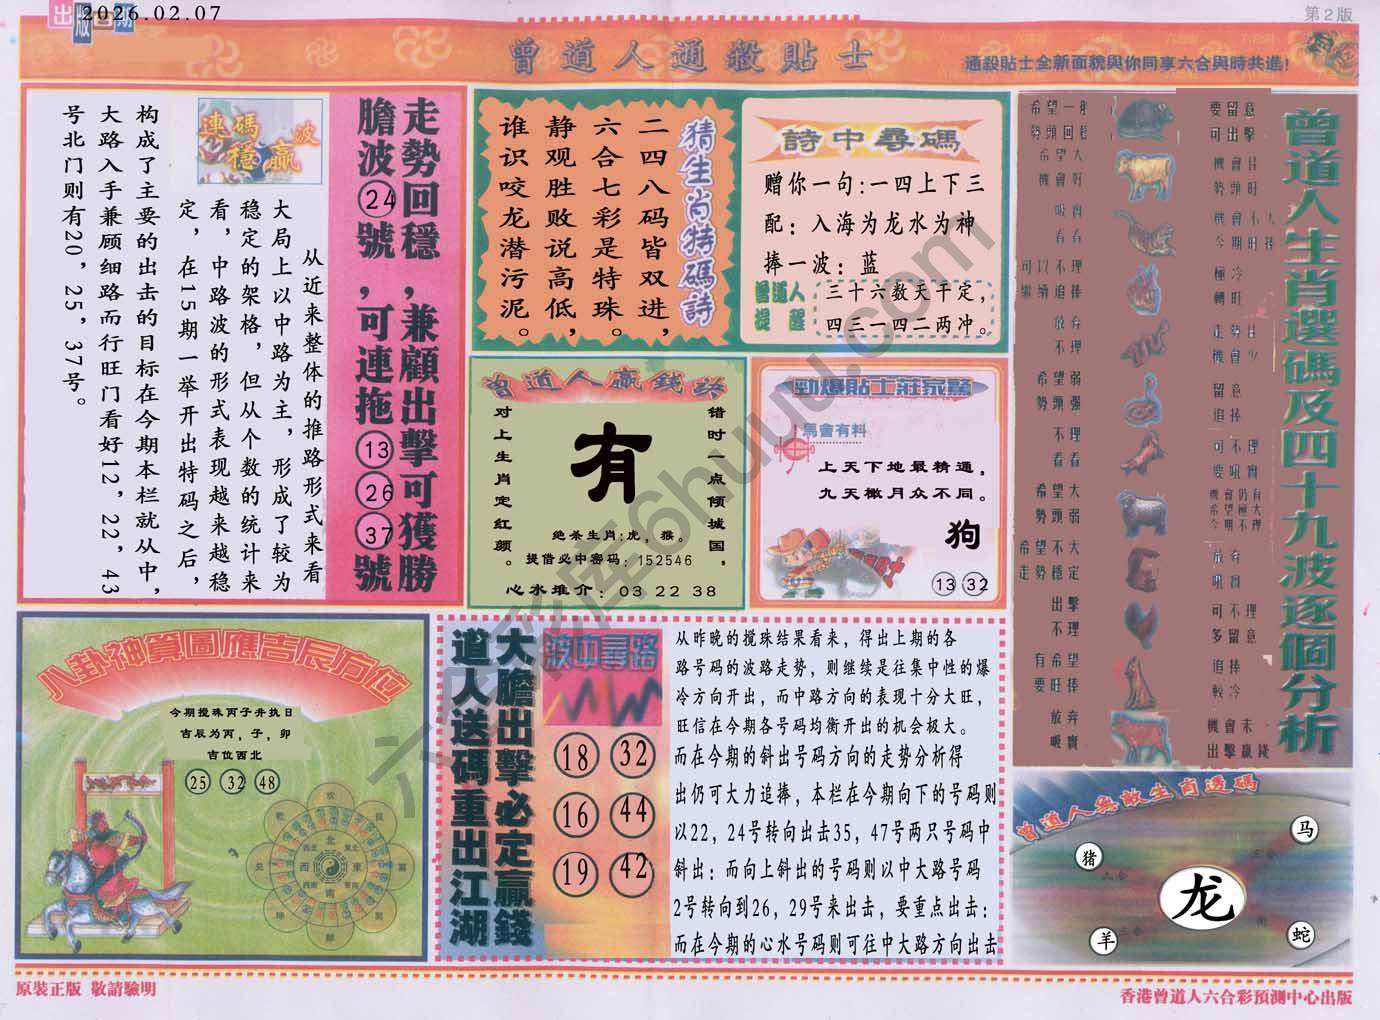 出版日期
2026.02.07
第2版
曾道人通殺貼士
通殺貼士全新面貌與你同享六合與時共進!
走勢回穩,兼顧出擊可獲勝
膽波24號,可連拖13 26 37號
連碼波
穩贏
从近来整体的推路形式来看
大局上以中路为主,形成了较为
稳定的架格,但从个数的统计来
看,中路波的形式表现越来越稳
定,在15期一举开出特码之后,
构成了主要的出击的目标在今期本栏就从中,
大路入手兼顾细路而行旺门看好12,22,43
号北门则有20,25,37号。
猜生肖特碼詩
二四八码皆双进,
六合七彩是特珠。
静观胜败说高低,
谁识咬龙潜污泥。
詩中尋碼
赠你一句:一四上下三
配:入海为龙水为神
捧一波:蓝
曾道人
提醒
三十六数天干定,
四三一四二两冲。
曾道人贏錢诀
错时一点倾城国,
对上生肖定红颜。
有
绝杀生肖:虎,猴。
提借必中密码:152546
心水推介:03 22 38
勁爆貼士莊家驚
馬會有料
上天下地最精通,
九天檄月众不同。
狗
13 32
曾道人生肖選碼及四十九波逐個分析
要留意
可出擊
希望大
機會好
機會佳
勢頭旺
吸實
看看
機會不大
今期旺捧
可以不理
繼續追捧
極冷
轉旺
放弃
不理
希望弱
勢頭强
留意
追捧
不理
看看
可不理
要吼實
希望大
勢頭弱
希望不大
走勢穩定
放弃
吼實
出擊
不理
可不理
多留意
有希望
要旺捧
追捧
較冷
放弃
吸實
出擊贏錢
八卦神算圖應吉辰方位
今期搅珠丙子井执日
吉辰为丙,子,卯
吉位西北
25 32 48
大膽出擊必定贏錢
道人送碼重出江湖
波中尋路
18 32
16 44
19 42
从昨晚的搅珠结果看来,得出上期的各
路号码的波路走势,则继续是往集中性的爆
冷方向开出,而中路方向的表现十分大旺,
旺信在今期各号码均衡开出的机会极大。
而在今期的斜出号码方向的走势分析得
出仍可大力追捧,本栏在今期向下的号码则
以22,24号转向出击35,47号两只号码中
斜出:而向上斜出的号码则以中大路号码
2号转向到26,29号来出击,要重点出击:
而在今期的心水号码则可往中大路方向出击
曾道人無敵生肖透碼
马
猪
龙
羊
蛇
原裝正版 敬請驗明
香港曾道人六合彩預測中心出版